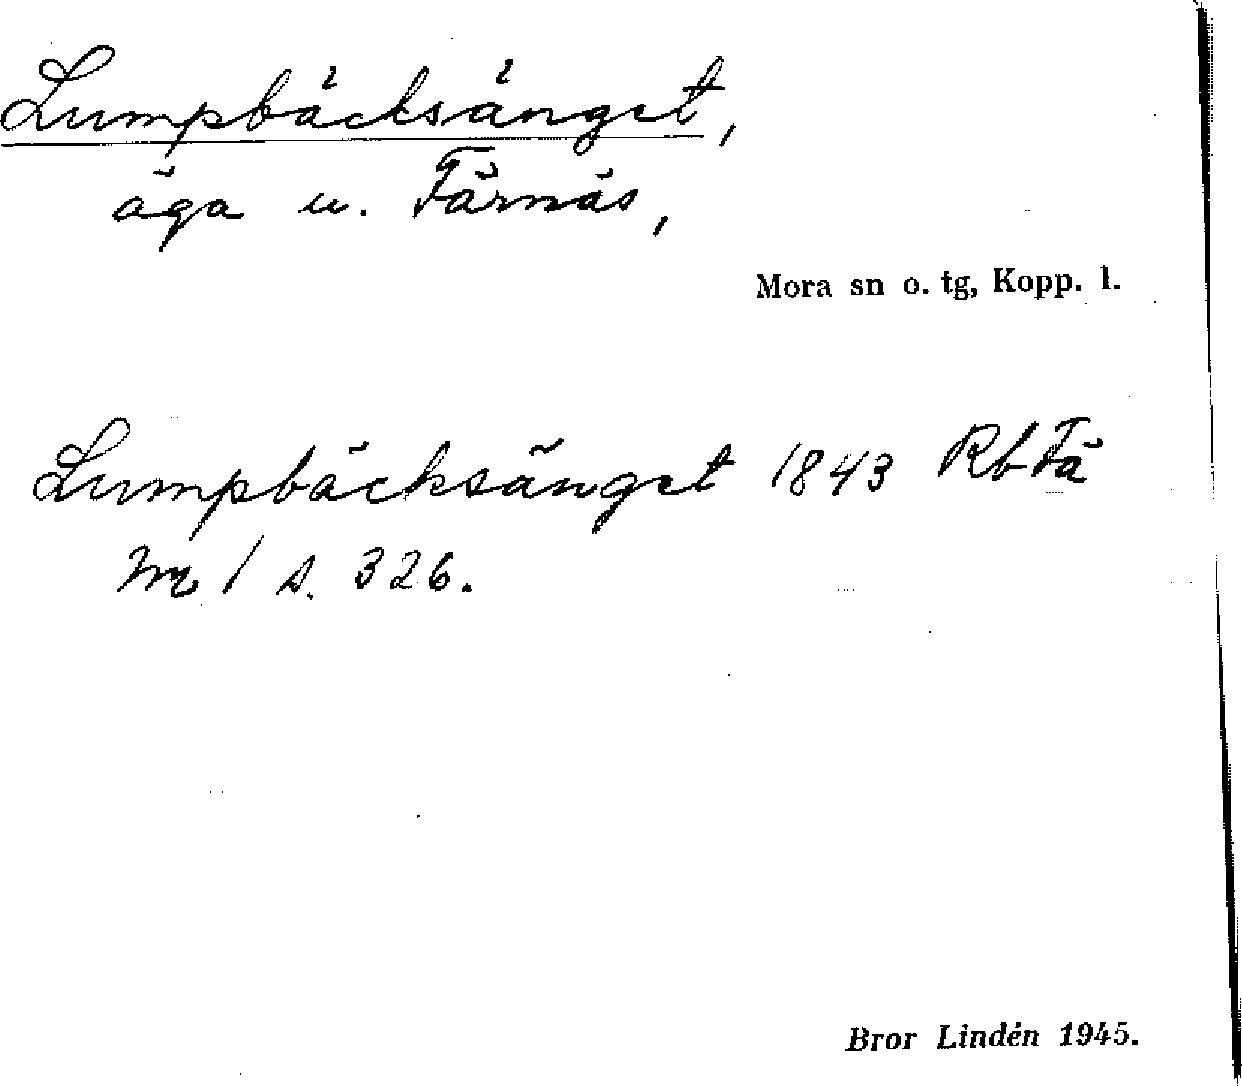 Lumpbäcksänget,
äga u. Färnäs,
Mora sn o. tg, Kopp. l.
Lumpbäcksänget 1843 Rb Fä
nr 1 s. 326.
Bror Lindén 1945.